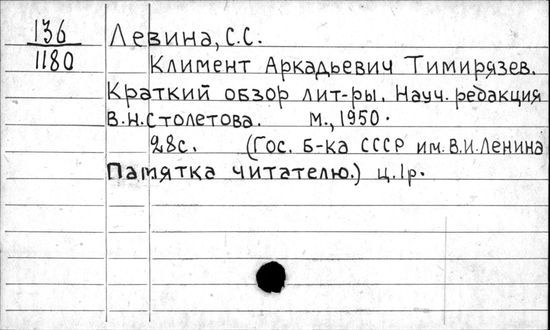 136 Левина, С.С.
1180 Климент Аркадьевич Тимирязев.
Краткий обзор лит-ры. Науч. редакция
В.Н.Столетова. М., 1950.
28с. (Гос. Б-ка СССР им. В.И.Ленина
Памятка читателю.) ц.1р.